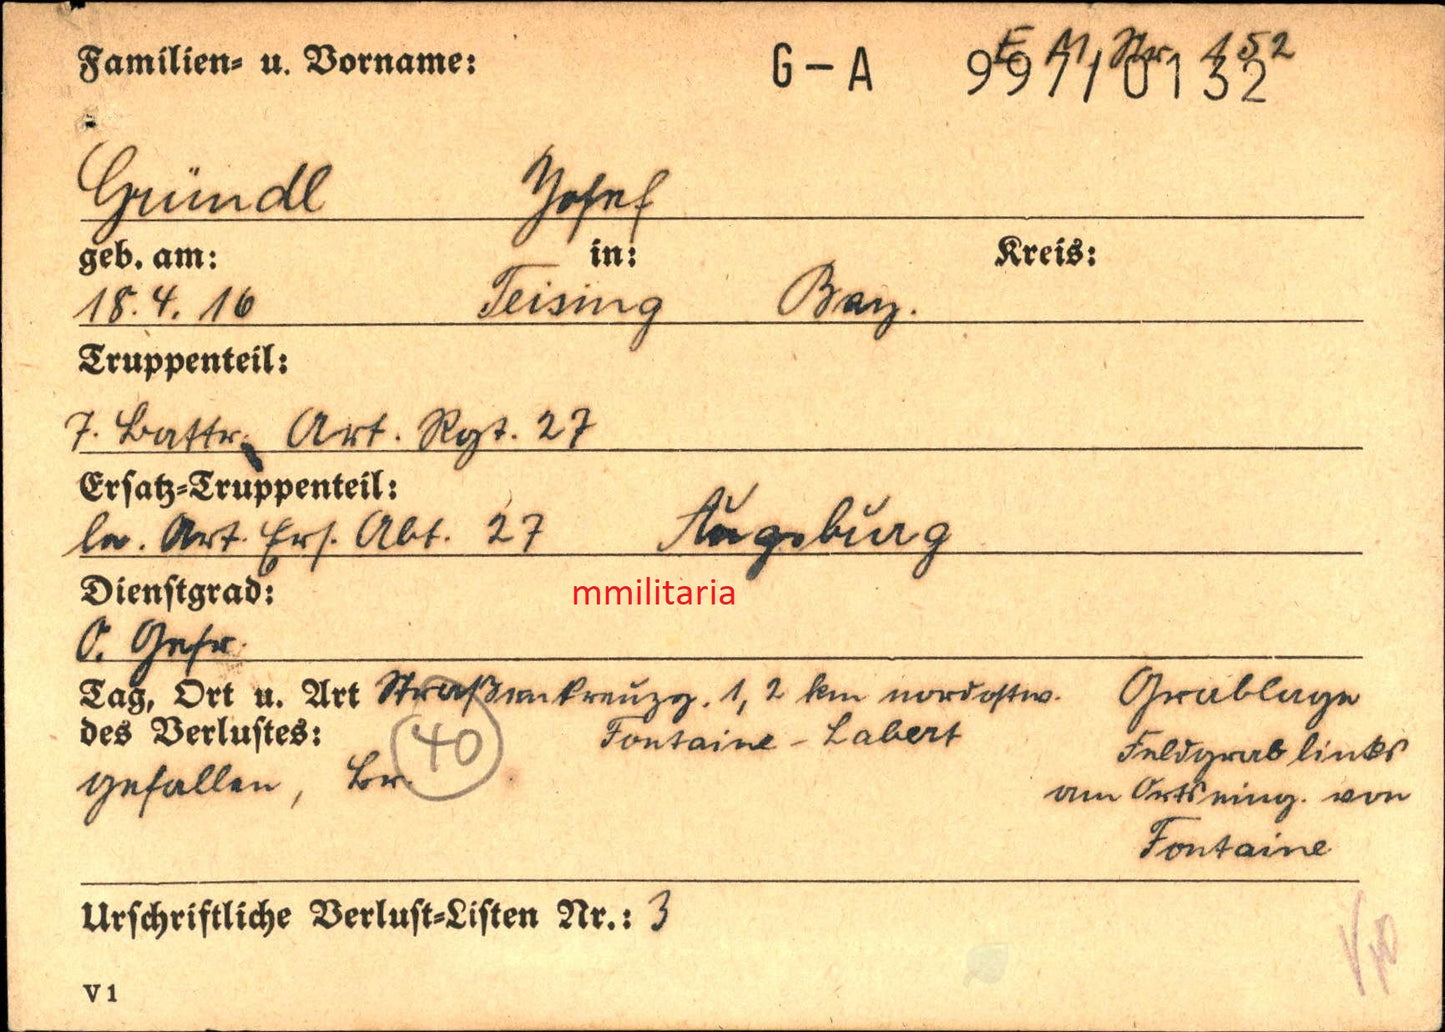 Familien- u. Vorname: G-A 997/0132
E M Str 152
Gründl Josef
geb. am: in: Kreis:
18.4.16 Teising Bay.
Truppenteil:
7. Battr. Art. Rgt. 27
Ersatz-Truppenteil:
le. Art. Ers. Abt. 27 Augsburg
Dienstgrad:
O. Gefr.
Tag, Ort u. Art Straßenkreuzg. 1,2 km nordostw. Grablage
des Verlustes: 40 Fontaine - Labert Feldgrab links
gefallen, Br. am Ortseing. von
Fontaine
Urschriftliche Verlust-Listen Nr.: 3
V 1
mmilitaria